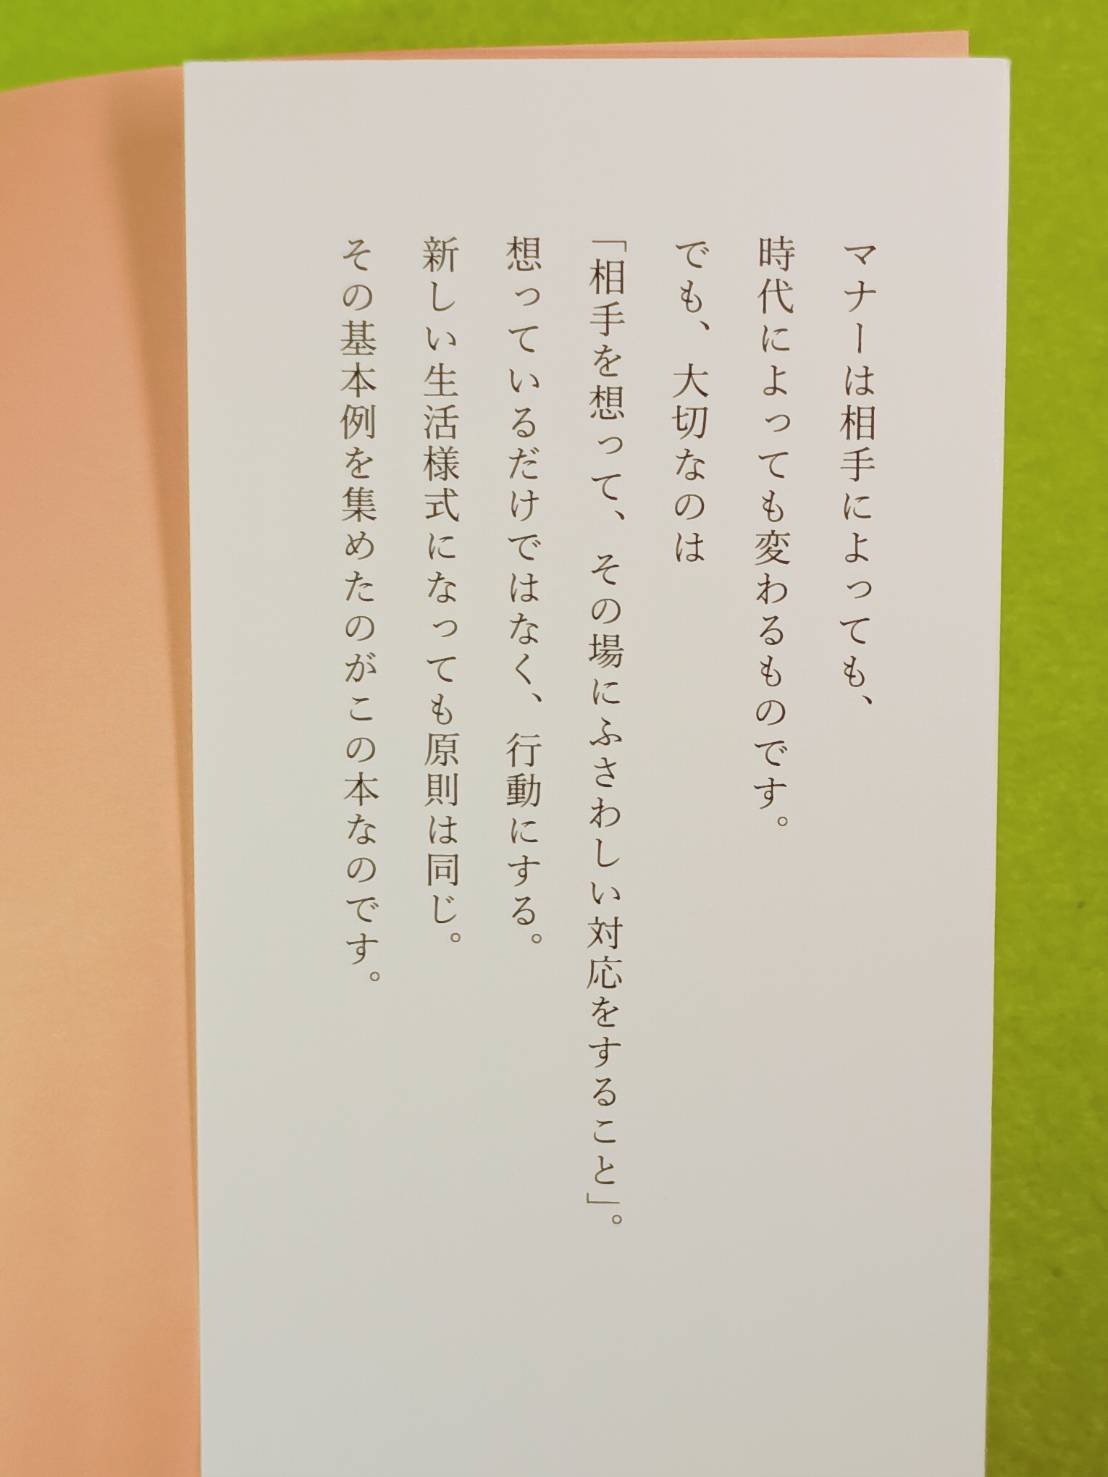 マナーは相手によっても、
時代によっても変わるものです。
でも、大切なのは
「相手を想って、その場にふさわしい対応をすること」。
想っているだけではなく、行動にする。
新しい生活様式になっても原則は同じ。
その基本例を集めたのがこの本なのです。